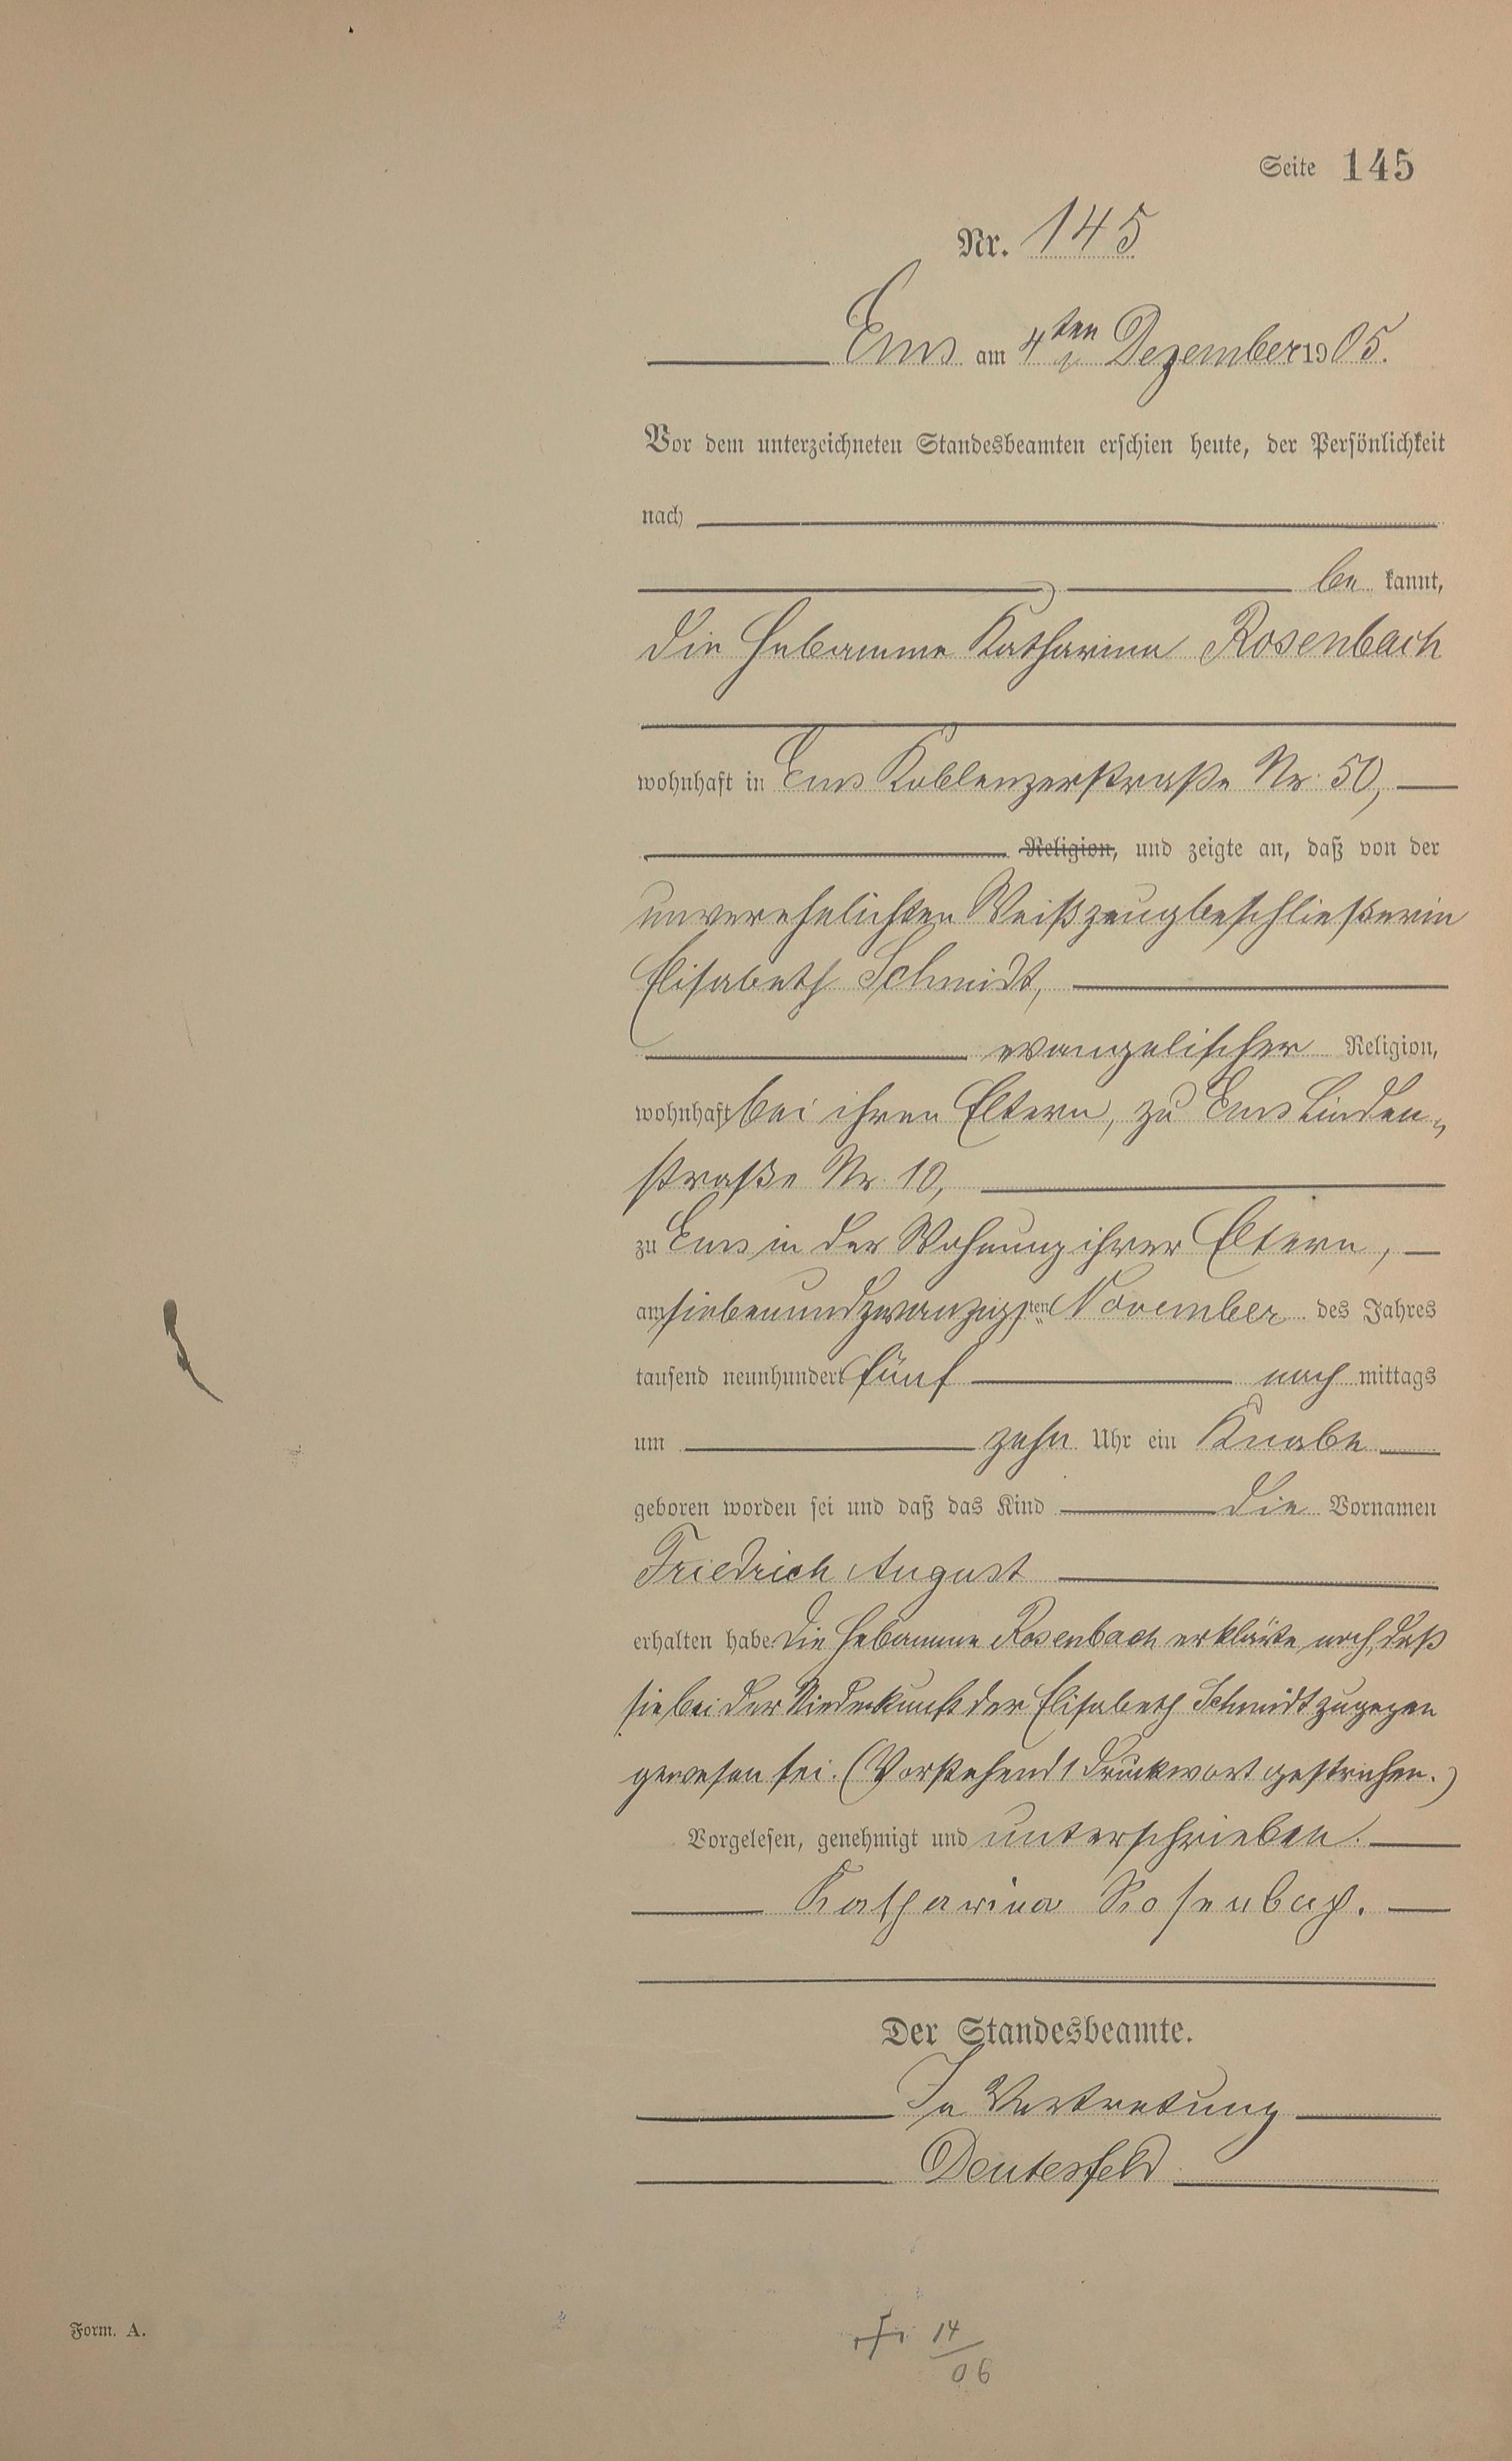 Seite 145
Nr. 145
Ems am 4ten Dezember 1905.
Vor dem unterzeichneten Standesbeamten erschien heute, der Persönlichkeit
nach
be kannt,
die Hebamme Katharina Rosenbach
wohnhaft in Ems Koblenzerstraße Nr. 50,
Religion, und zeigte an, daß von der
unverehelichten Weißzeugbeschließerin
Elisabeth Schmidt,
evangelischer Religion,
wohnhaft bei ihren Eltern, zu Ems Linden„
straße Nr. 10,
zu Ems in der Wohnung ihrer Eltern,
am siebenundzwanzigsten November des Jahres
tausend neunhundert fünf nach mittags
um zehn Uhr ein Knabe
geboren worden sei und daß das Kind die Vornamen
Friedrich August
erhalten habe. Die Hebamme Rosenbach erklärte noch, daß
sie bei der Niederkunft der Elisabeth Schmidt zugegen
gewesen sei. (Vorstehend 1 Druckwort gestrichen.)
Vorgelesen, genehmigt und unterschrieben.
Katharina Rosenbach.
Der Standesbeamte.
In Vertretung
Deutesfeld
Form. A.
14
06